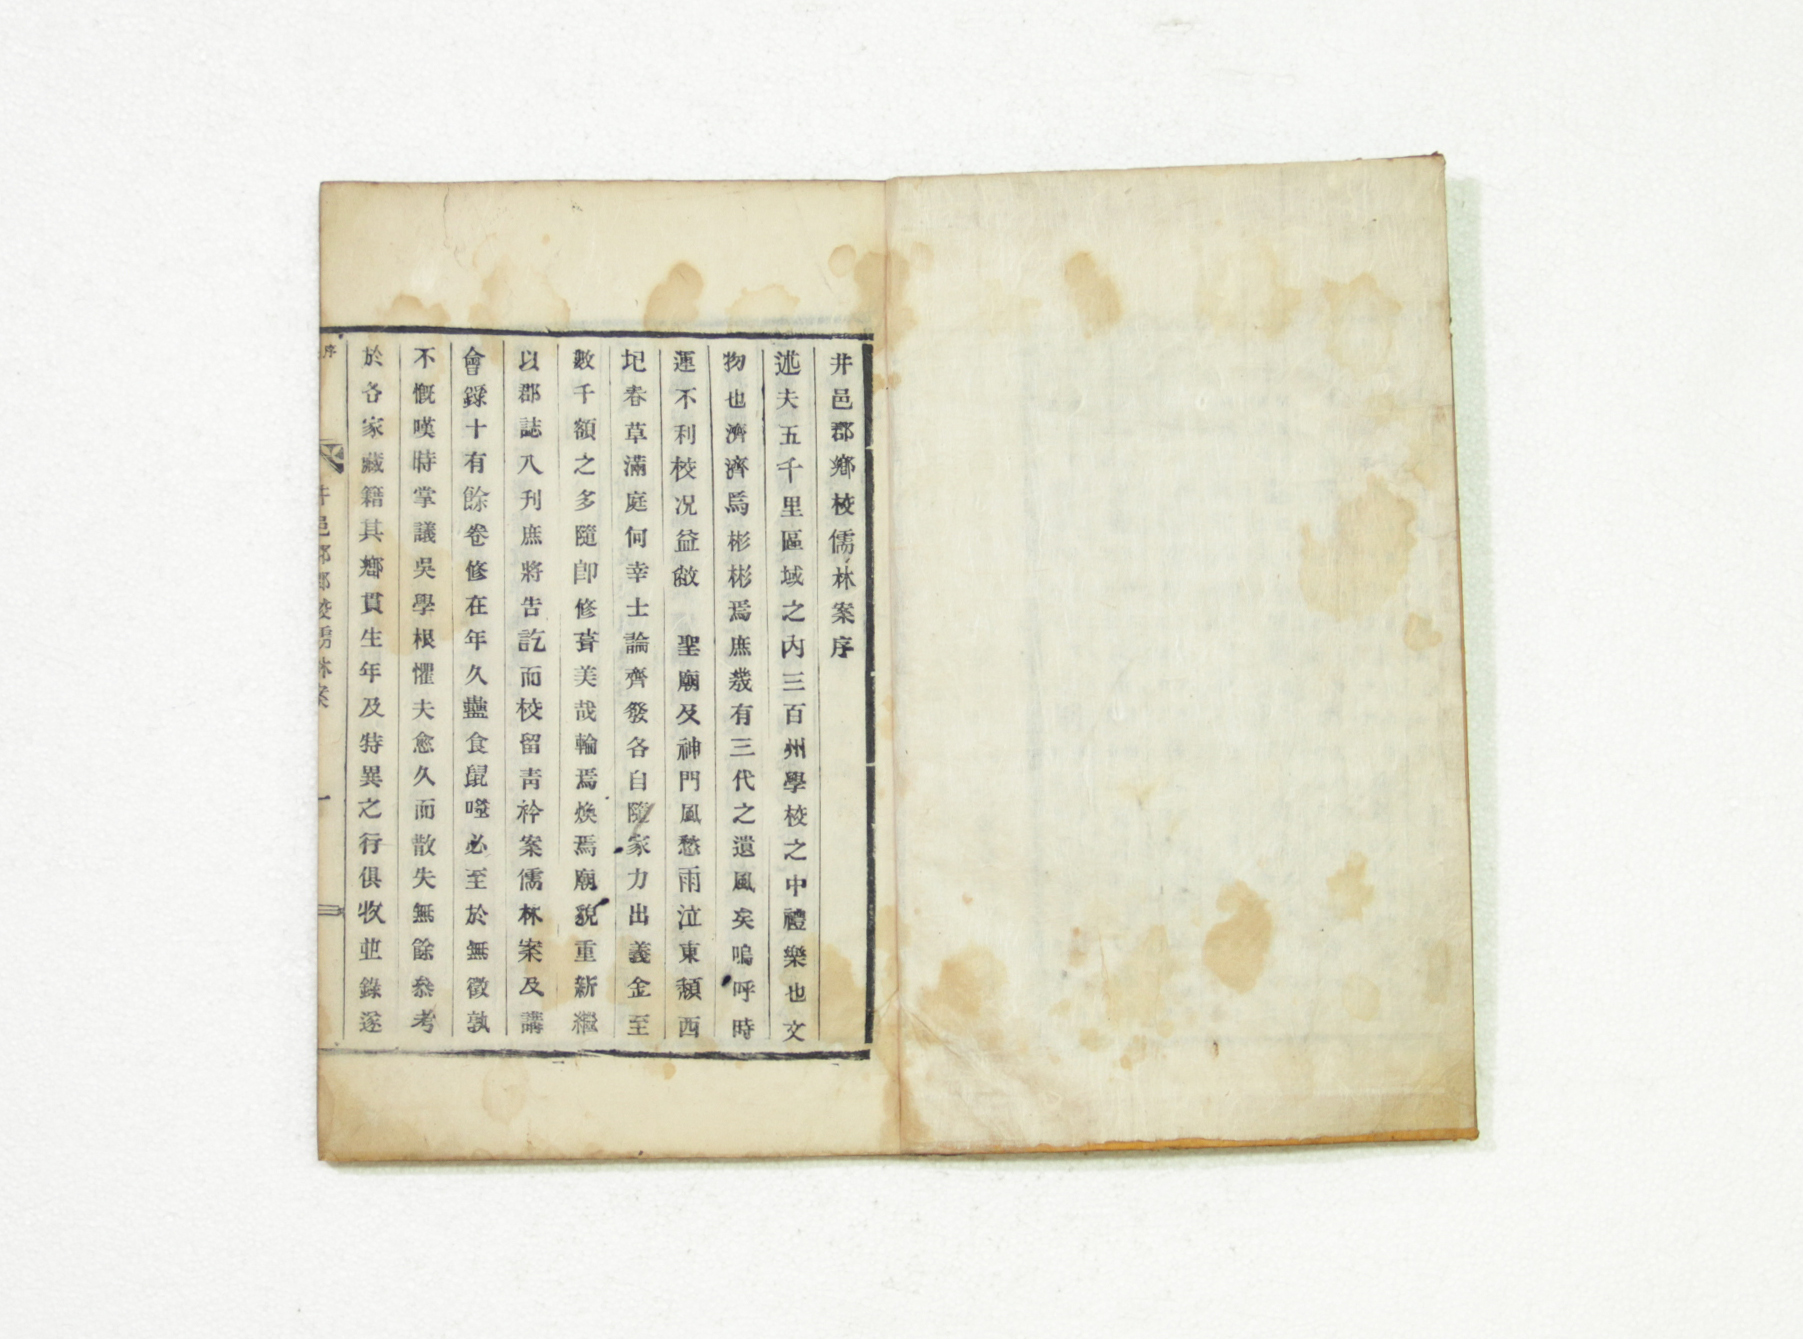 井邑郡鄕校儒林案序
述夫五千里區域之內三百州學校之中禮樂也文
物也濟濟焉彬彬焉庶幾有三代之遺風矣嗚呼時
運不利校况益敝　聖廟及神門風愁雨泣東頹西
圮春草滿庭何幸士論齊發各自隨家力出義金至
數千額之多隨卽修葺美哉輪焉煥焉廟貌重新繼
以郡誌入刊庶將告訖而校留靑衿案儒林案及講
會錄十有餘卷修在年久蠹食鼠嚙必至於無徵孰
不慨嘆時掌議吳學根懼夫愈久而散失無餘叅考
於各家藏籍其鄕貫生年及特異之行俱收並錄遂
序
井邑郡鄕校儒林案
一